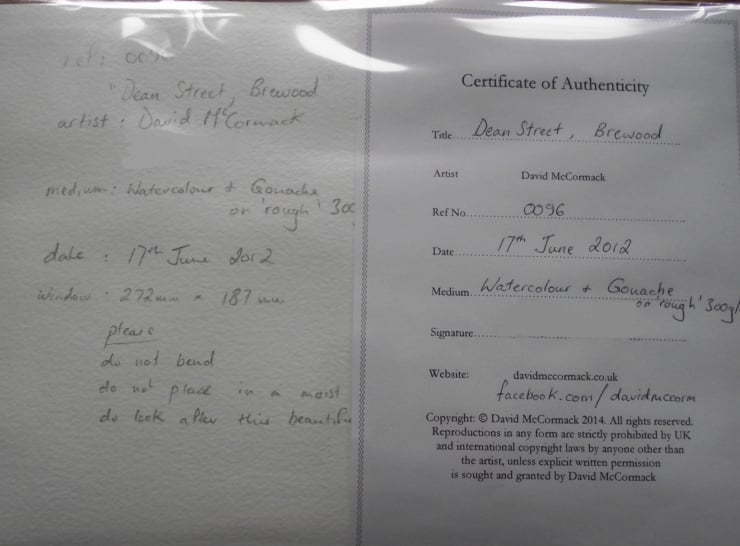 ref: 0096
"Dean Street, Brewood"
artist : David McCormack
medium: Watercolour + Gouache
on 'rough' 300
date : 17th June 2012
window : 272mm × 187mm
please
do not bend
do not place in a moist
do look after this beautifu
Certificate of Authenticity
Title Dean Street, Brewood
Artist David McCormack
Ref No. 0096
Date 17th June 2012
Medium Watercolour + Gouache
on 'rough' 300g/
Signature
Website: davidmccormack.co.uk
facebook.com/davidmccorm
Copyright: © David McCormack 2014. All rights reserved.
Reproductions in any form are strictly prohibited by UK
and international copyright laws by anyone other than
the artist, unless explicit written permission
is sought and granted by David McCormack